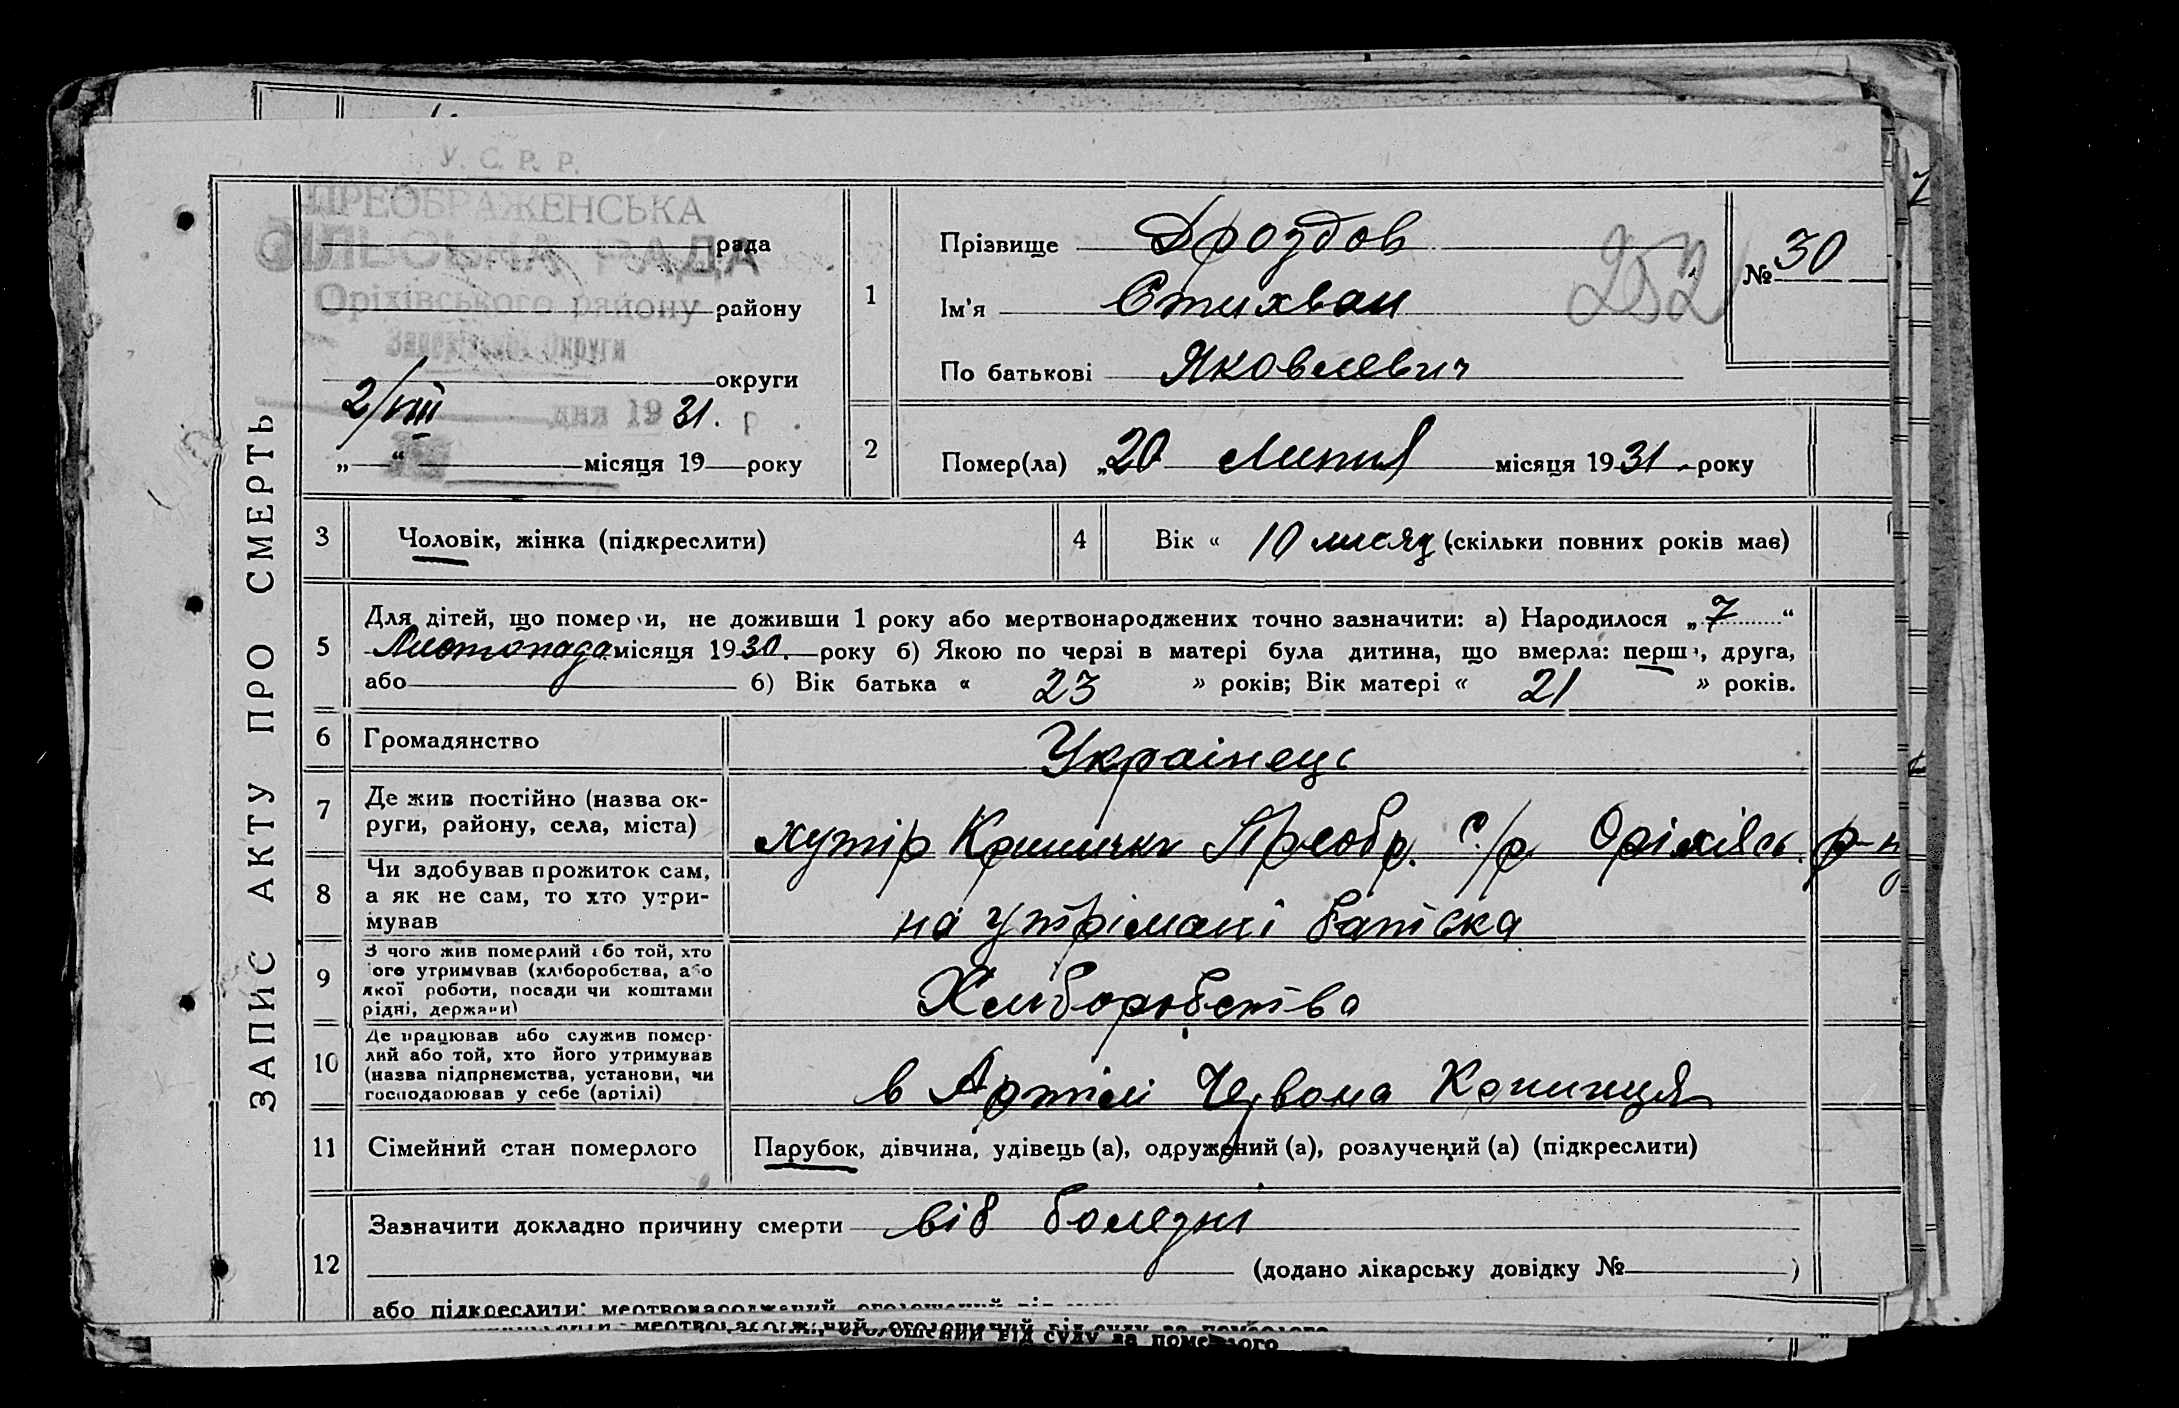 У. С. Р. Р.
ПРЕОБРАЖЕНСЬКА
СІЛЬСЬКА РАДА
рада
Оріхівського району
району
Округи
округи
2/VIII дня 1931. р.
„ “ місяця 19 року
ЗАПИС АКТУ ПРО СМЕРТЬ
1
Прізвище Дроздов
Ім’я Стихван
По батькові Яковлевич
№ 30
252
2
Помер(ла) „20 Липня місяця 1931 року
3
Чоловік, жінка (підкреслити)
4
Вік « 10 місяц (скільки повних років має)
5
Для дітей, що помер и, не доживши 1 року або мертвонароджених точно зазначити: а) Народилося „7“
Листопада місяця 1930. року б) Якою по черзі в матері була дитина, що вмерла: перш , друга,
або б) Вік батька « 23 » років; Вік матері « 21 » років.
6
Громадянство
Украінець
7
Де жив постійно (назва ок-
руги, району, села, міста)
хутір Кринички Преобр. с/р Оріхівсь. р-н
8
Чи здобував прожиток сам,
а як не сам, то хто утри-
мував
на утрімані батька
9
З чого жив померлий або той, хто
ого утримував (хліборобства, або
якої роботи, посади чи коштами
рідні, держави)
Хліборобства
10
Де працював або служив помер-
лий або той, хто його утримував
(назва підприємства, установи, чи
господарював у себе (артілі)
в Артілі Червона Криниця
11
Сімейний стан померлого
Парубок, дівчина, удівець (а), одружений (а), розлучений (а) (підкреслити)
12
Зазначити докладно причину смерти від болезні
(додано лікарську довідку № )
або підкреслити: мертвонароджений, оголошений від суду
мертвонароджений, оголошений від суду за померлого
оголошений від суду за померлого